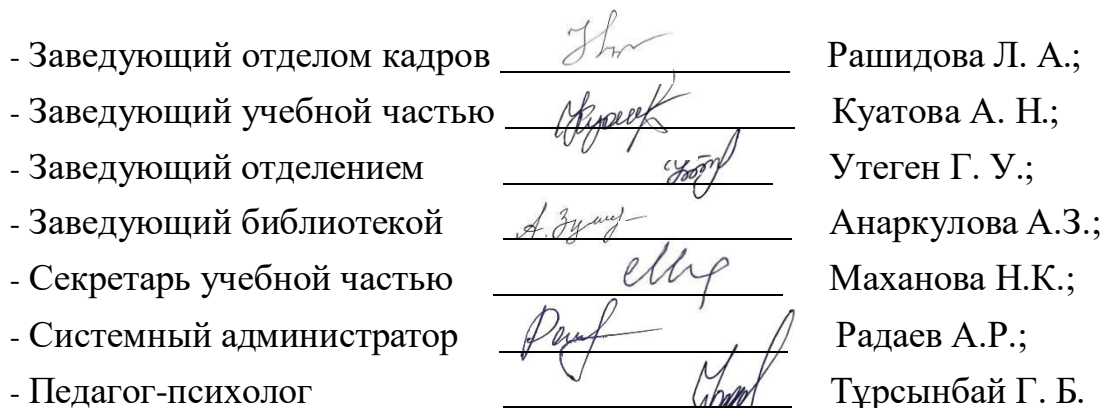 - Заведующий отделом кадров Рашидова Л. А.;
- Заведующий учебной частью Куатова А. Н.;
- Заведующий отделением Утеген Г. У.;
- Заведующий библиотекой Анаркулова А.З.;
- Секретарь учебной частью Маханова Н.К.;
- Системный администратор Радаев А.Р.;
- Педагог-психолог Тұрсынбай Г. Б.